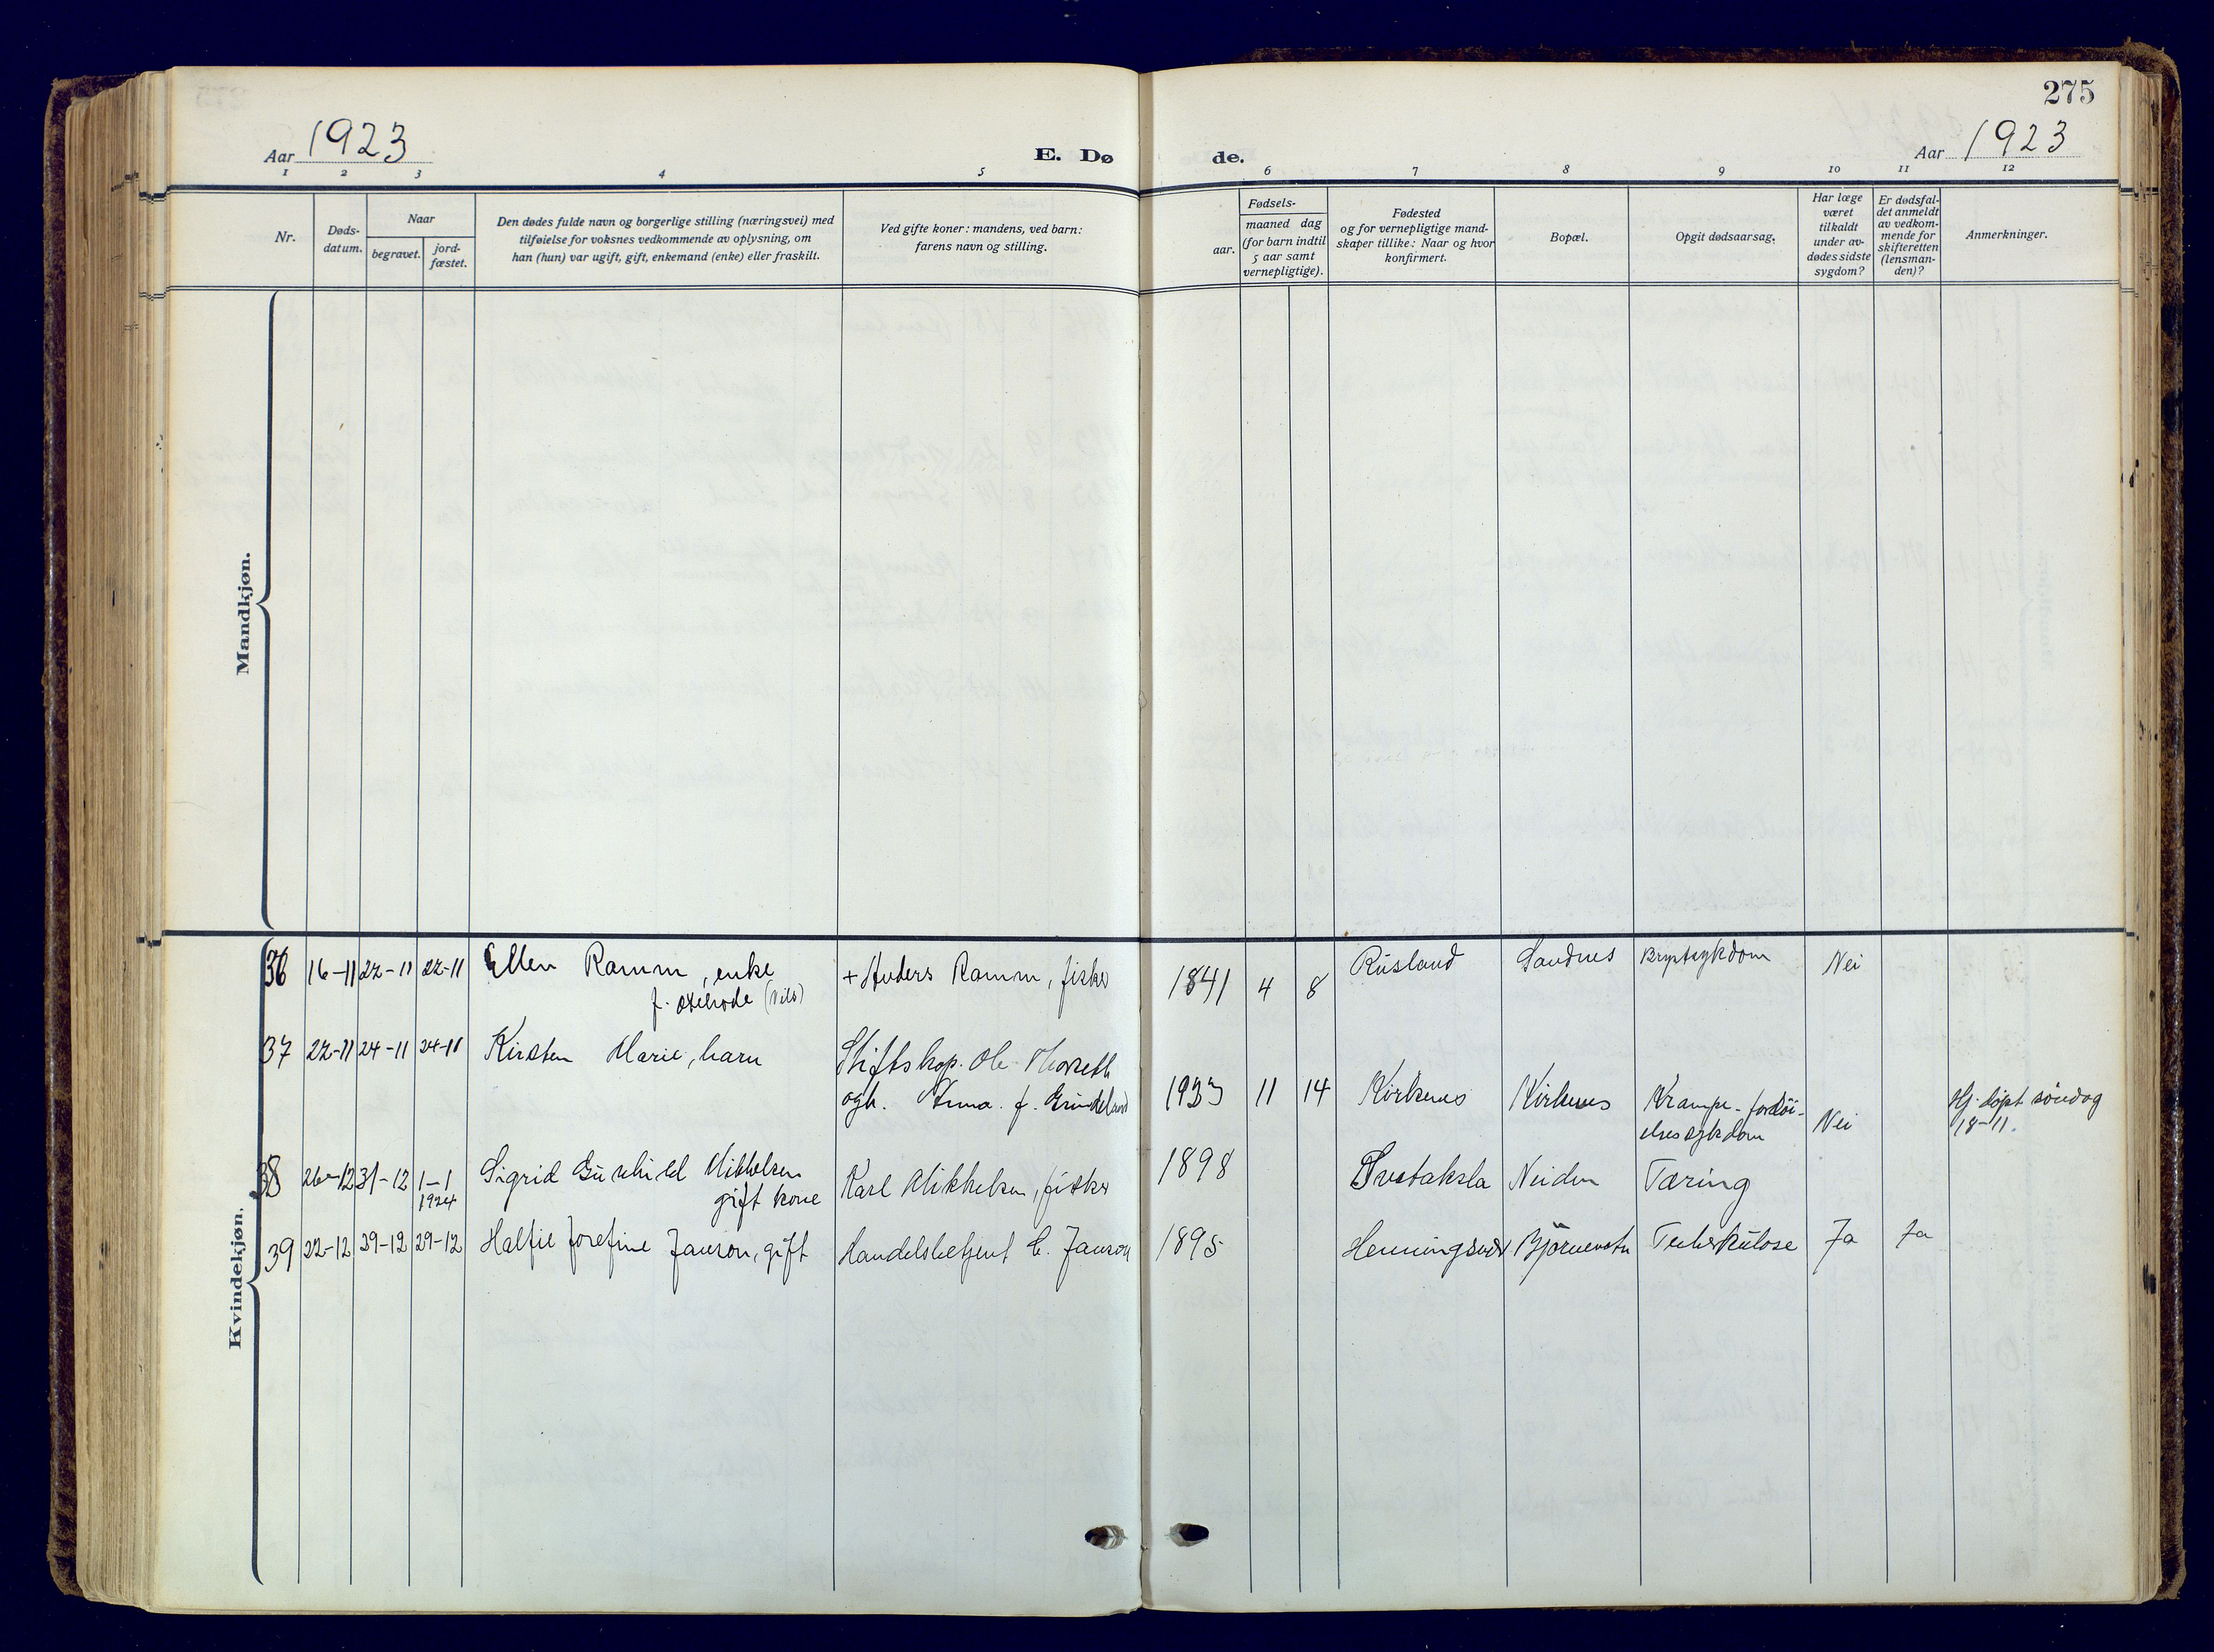 275
Aar 1923
E. Døde.
Aar 1923
1 2 3 4 5 6 7 8 9 10 11 12
Nr.
Døds-
datum.
Naar
begravet.
jord-
fæstet.
Den dødes fulde navn og borgerlige stilling (næringsvei) med
tilføielse for voksnes vedkommende av oplysning, om
han (hun) var ugift, gift, enkemand (enke) eller fraskilt.
Ved gifte koner: mandens, ved barn:
farens navn og stilling.
Fødsels-
aar.
maaned dag
(for barn indtil
5 aar samt
vernepligtige).
Fødested
og for vernepligtige mand-
skaper tillike: Naar og hvor
konfirmert.
Bopæl.
Opgit dødsaarsag.
Har læge
været
tilkaldt
under av-
dødes sidste
sygdom?
Er dødsfal-
det anmeldt
av vedkom-
mende for
skifteretten
(lensman-
den)?
Anmerkninger.
Mandkjøn.
Kvindekjøn.
36 16-11 22-11 22-11 Ellen Ramm, enke + Anders Ramm, fisker 1841 4 8 Rusland Sandnes Brystsykdom Nei
f. (Nils)
37 22-11 24-11 24-11 Kirsten Marie, barn Stiftskap. Ole Thorseth
ogh. Anna f. 1923 11 14 Kirkenes Kirkenes Krampe- fordøi-
elsessykdom Nei Hj. døpt søndag
18-11.
38 26-12 31-12 1-1
1924 Sigrid Gunhild Mikkelsen
gift kone Karl Mikkelsen, fisker 1898 Neiden Tæring
39 22-12 29-12 29-12 Josefine Janson, gift Handelsbetjent C. Janson 1895 Henningsvær Bjørnevatn Tuberkulose Ja Ja